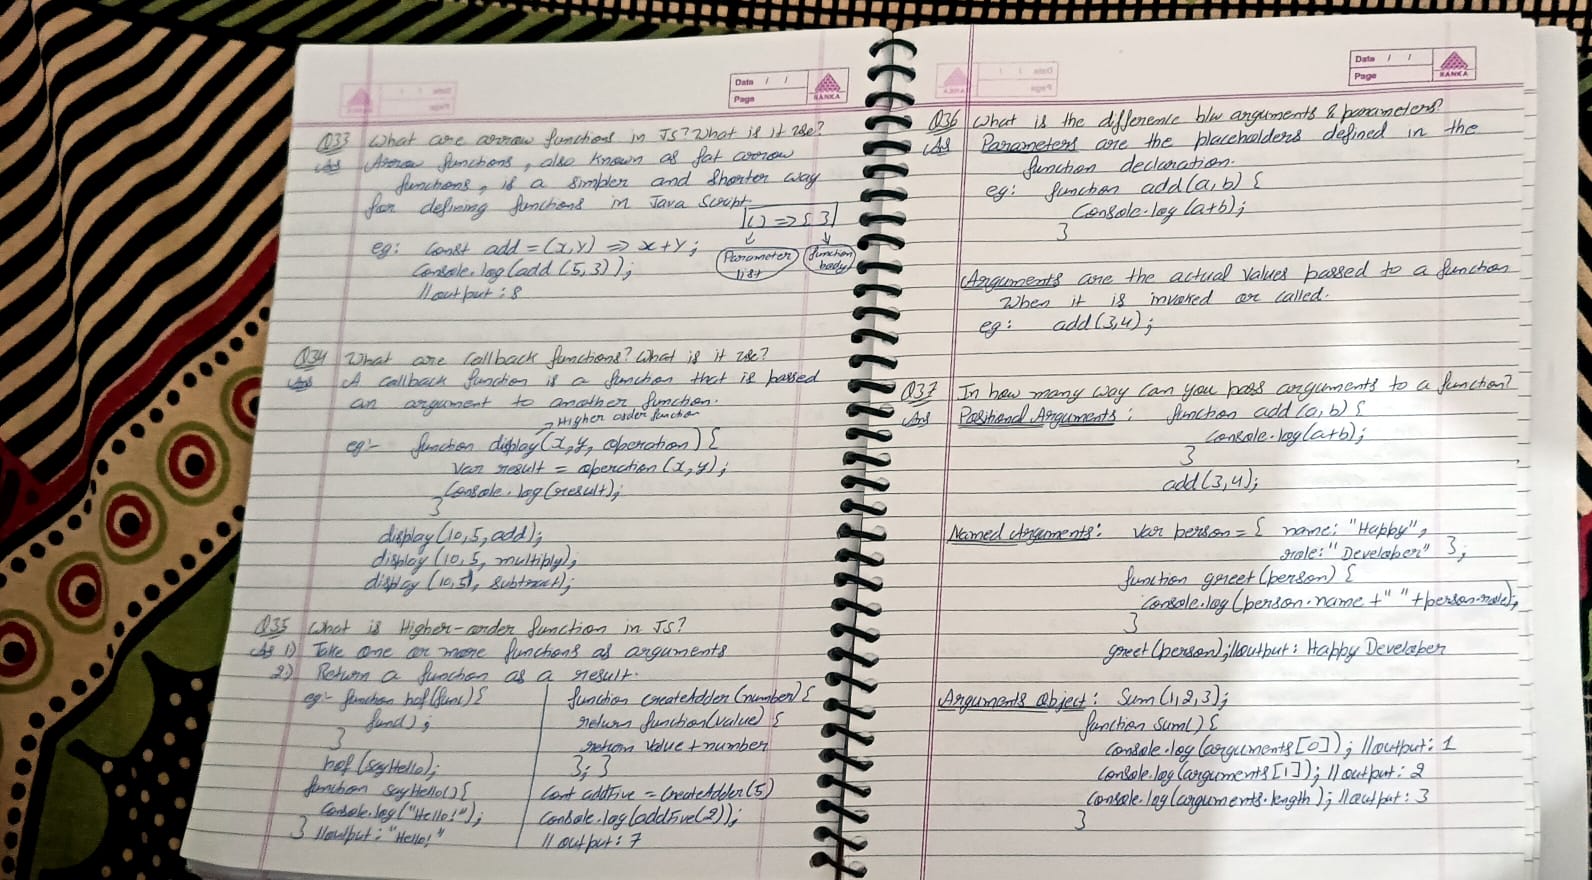 Date / /
Page
RANKA
Q33 What are arrow functions in JS? What is it use?
Ans Arrow functions, also known as fat arrow
functions, is a simpler and shorter way
for defining functions in Java Script.
() => { }
Parameter list
function body
eg: const add = (x,y) => x+y;
console.log(add(5,3));
//output: 8
Q34 What are callback functions? What is it use?
Ans A callback function is a function that is passed
an argument to another function.
→ Higher order function
eg:- function display(x,y, operation) {
var result = operation(x,y);
console.log(result);
}
display(10,5, add);
display(10,5, multiply);
display(10,5, subtract);
Q35 What is Higher-order function in JS?
Ans 1) Take one or more functions as arguments
2) Return a function as a result.
eg:- function hof(func) {
func();
}
hof(sayHello);
function sayHello() {
console.log("Hello!");
} //output: "Hello!"
function createAdder(number) {
return function(value) {
return value + number
}; }
const addFive = createAdder(5)
console.log(addFive(2));
// output: 7
Date / /
Page
RANKA
Q36 What is the difference b/w arguments & parameters?
Ans Parameters are the placeholders defined in the
function declaration.
eg: function add(a,b) {
console.log(a+b);
}
Arguments are the actual values passed to a function
when it is invoked or called.
eg: add(3,4);
Q37 In how many way can you pass arguments to a function?
Ans Positional Arguments: function add(a,b) {
console.log(a+b);
}
add(3,4);
Named Arguments: var person = { name: "Happy",
role: "Developer" };
function greet(person) {
console.log(person.name +" "+person.role);
}
greet(person); //output: Happy Developer
Arguments Object: Sum(1,2,3);
function sum() {
console.log(arguments[0]); //output: 1
console.log(arguments[1]); //output: 2
console.log(arguments.length); //output: 3
}